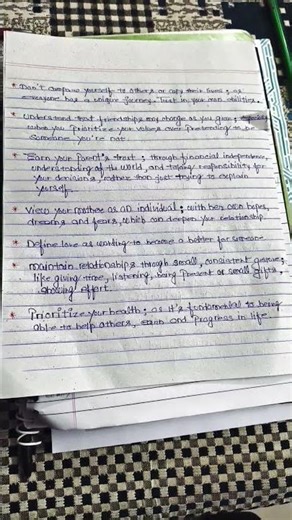 * Don't compare yourself to others or copy their lives; as
everyone has a unique journey. Trust in your own abilities.
* Understand that friendships may change as you grow; especially
when you prioritize your values over pretending to be
someone you're not.
* Earn your parent's trust; through financial independence,
understanding of the world, and taking responsibility for
your decisions, rather than just trying to explain
yourself.
* View your mother as an individual; with her own hopes,
dreams and fears, which can deepen your relationship.
* Define love as wanting to become a better for someone
* maintain relationships through small, consistent gesture;
like giving time, listening, being present or small gifts,
showing effort.
* Prioritize your health; as it's fundamental to being
able to help others, earn and Progress in life.